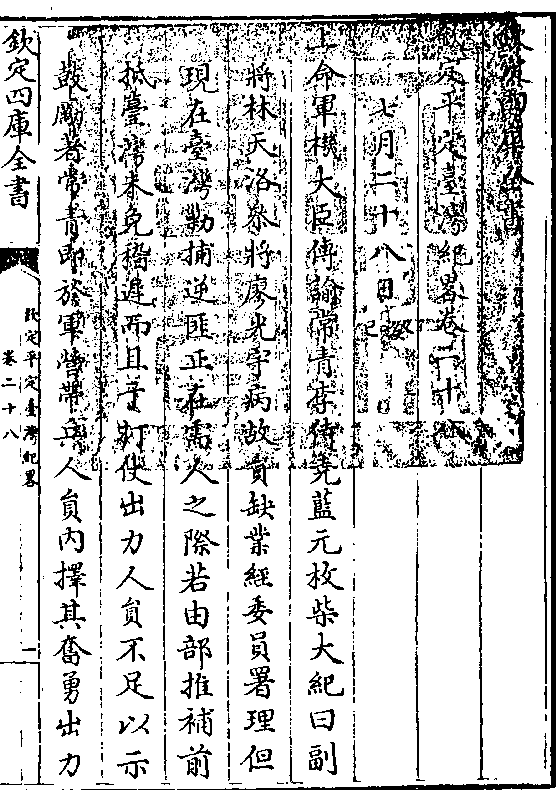 欽定四庫全書
欽定平定臺灣紀畧卷二十八
七月二十八日
上命軍機大臣傳諭常青李侍堯藍元枚柴大紀曰副
將林天洛叅將廖光宇病故員缺業經委員署理但
現在臺灣勦捕逆匪正在需人之際若由部推補前
抵臺灣未免稽遲而且于打仗出力人員不足以示
鼓勵著常青即於軍營帶兵人員內擇其奮勇出力
欽定四庫全書
欽定平定臺灣紀畧
卷二十八
一